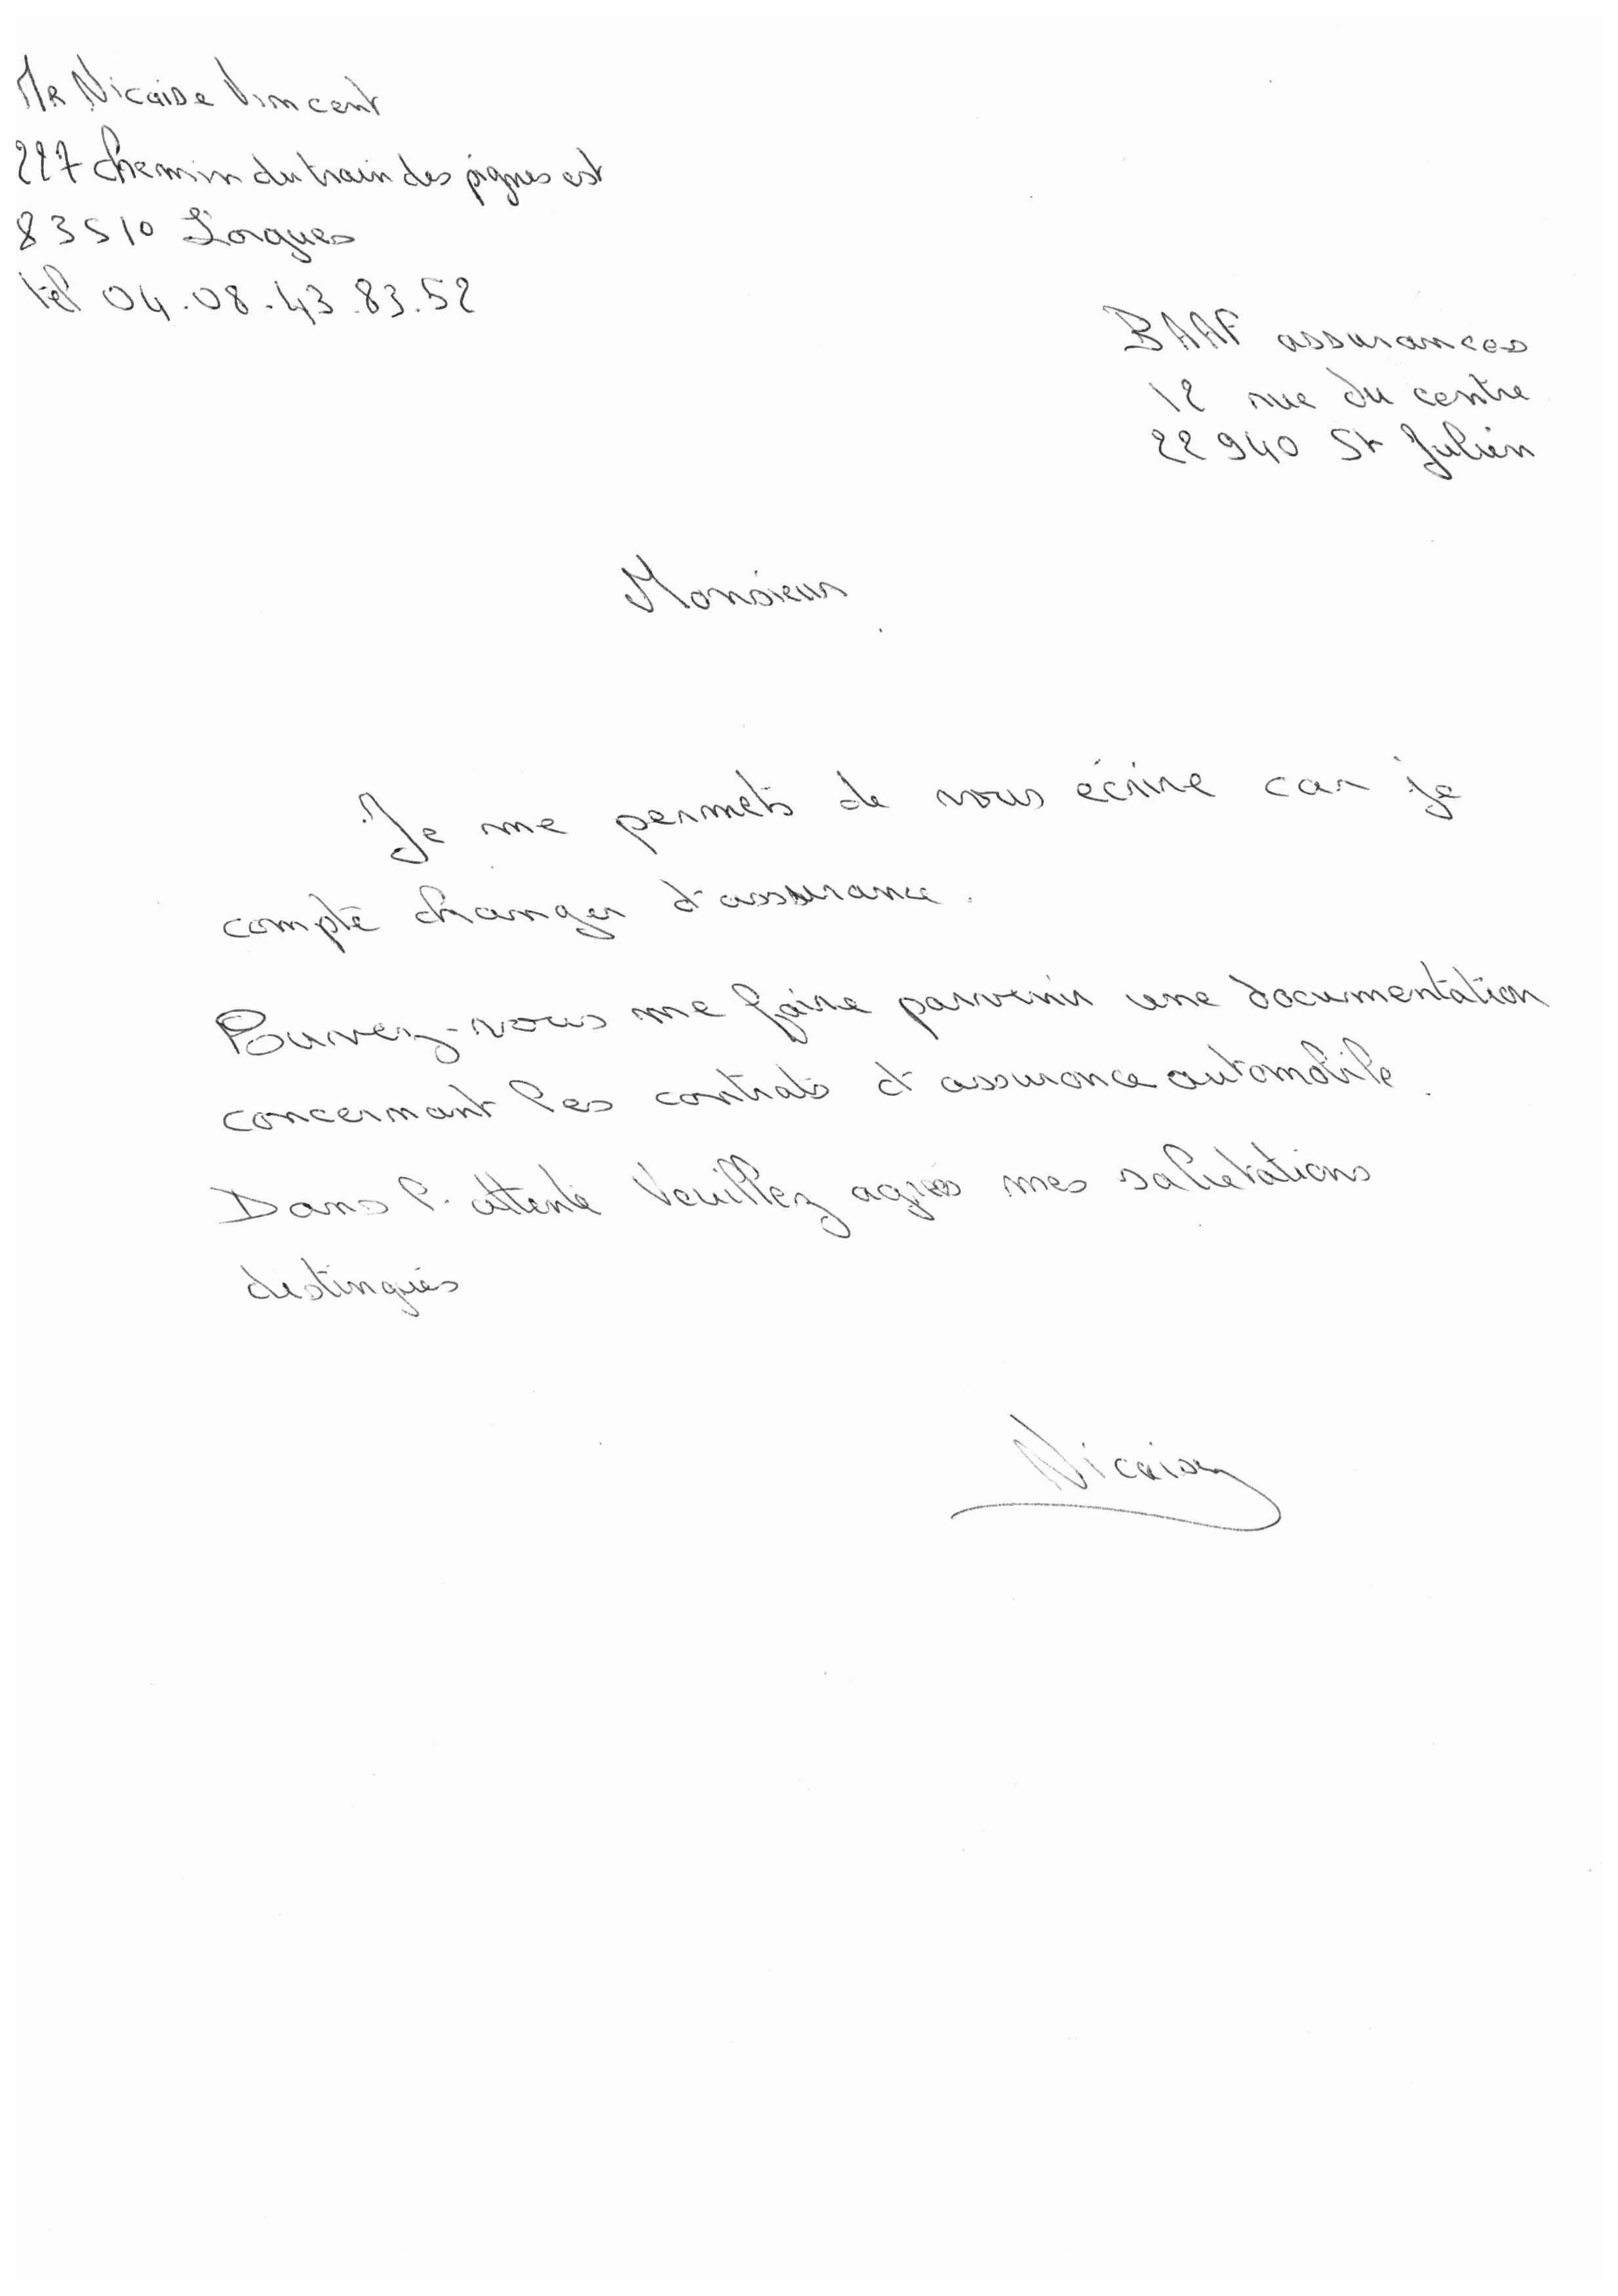 Mr Nicaise Vincent
227 chemin du train des pignes est
83510 Lorgues
tél 04.08.43.83.52
BAAF assurances
12 rue du centre
22940 St Julien
Monsieur
Je me permets de vous écrire car je
compte changer d'assurance.
Pouvez-vous me faire parvenir une documentation
concernant les contrats d'assurance automobile.
Dans l'attente Veuillez agrées mes salutations
distingués
Nicaise